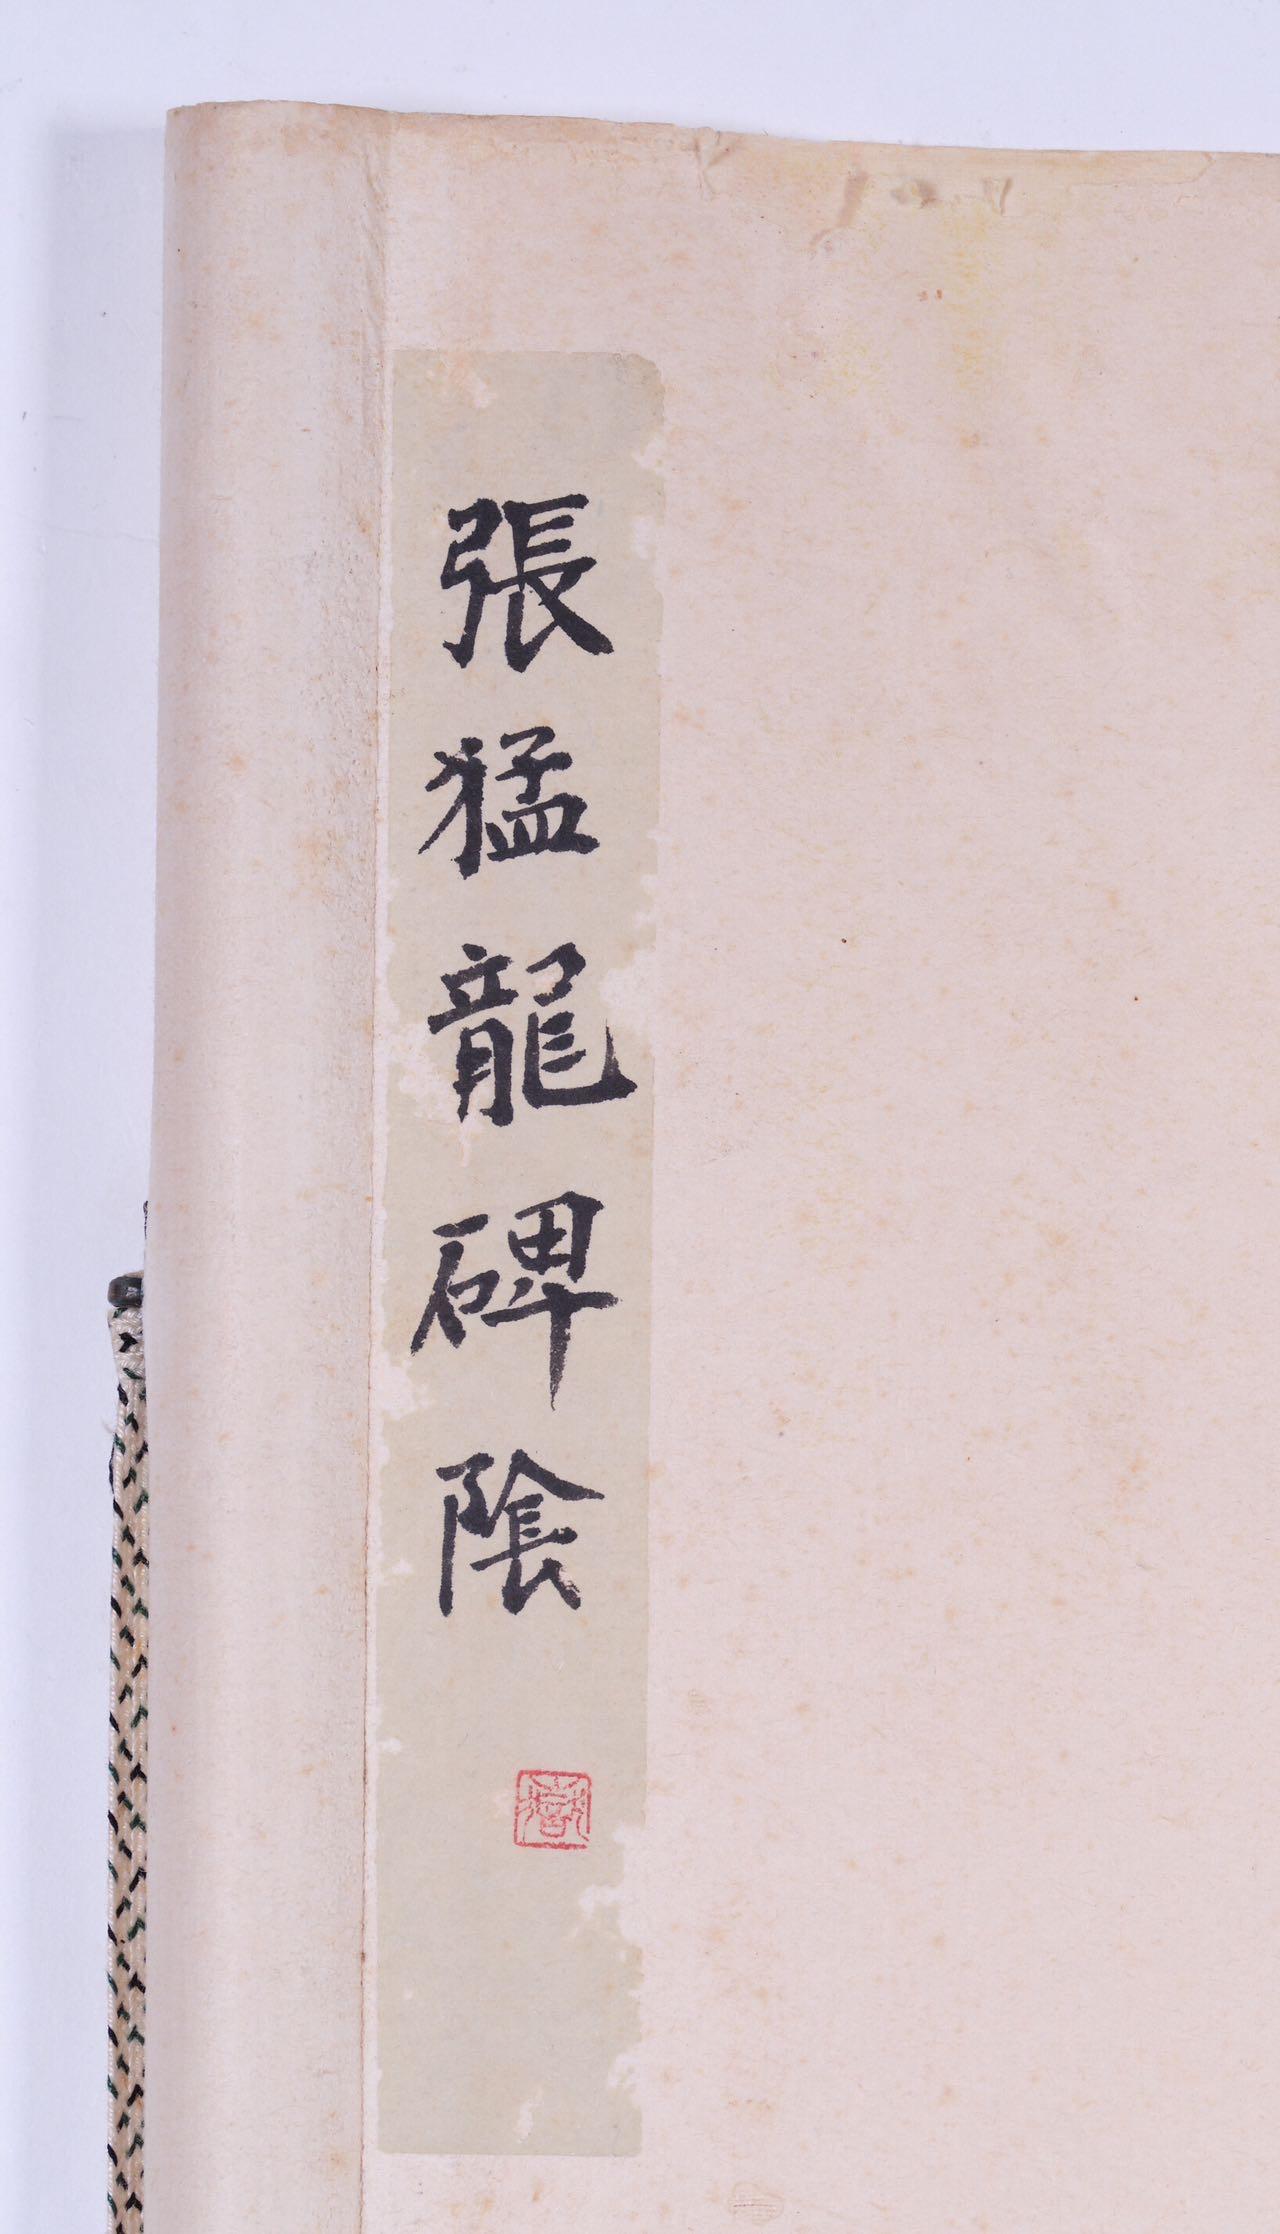 張猛龍碑陰